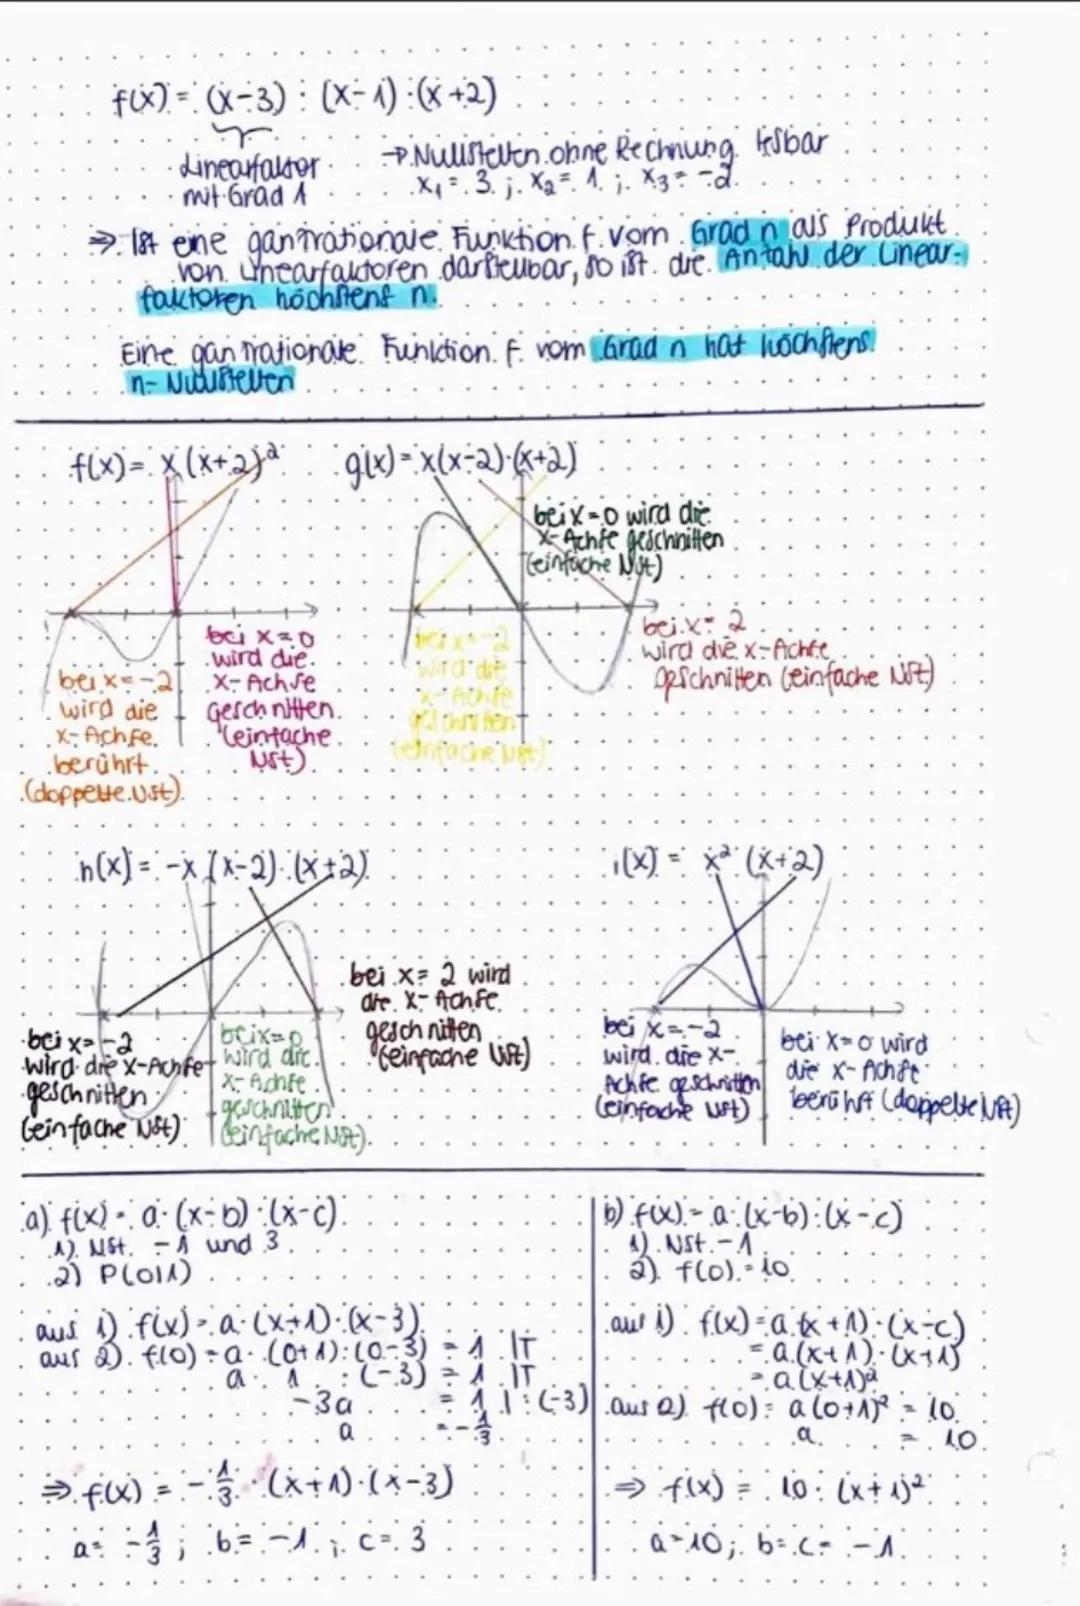 f(x) = (x-3) · (x-1) · (x+2)
Linearfaktor
mit Grad 1
→ Nullstellen ohne Rechnung lesbar
x₁ = 3 ; x₂ = 1 ; x₃ = -2
⇒ Ist eine ganzrationale Funktion f vom Grad n als Produkt
von Linearfaktoren darstellbar, so ist die Anzahl der Linear-
faktoren höchstens n.
Eine ganzrationale Funktion f vom Grad n hat höchstens
n- Nullstellen
f(x) = x (x+2)²
bei x = -2
wird die
x-Achse
berührt
(doppelte Nst)
bei x = 0
wird die
x-Achse
geschnitten
(einfache
Nst)
g(x) = x(x-2)·(x+2)
bei x = 0 wird die
x-Achse geschnitten
(einfache Nst)
bei x = -2
wird die
x-Achse
geschnitten
(einfache Nst)
bei x = 2
wird die x-Achse
geschnitten (einfache Nst)
h(x) = -x (x-2) · (x+2)
bei x = -2
wird die x-Achse
geschnitten
(einfache Nst)
bei x = 0
wird die
x-Achse
geschnitten
(einfache Nst)
bei x = 2 wird
die x-Achse
geschnitten
(einfache Nst)
i(x) = x² (x+2)
bei x = -2
wird die x-
Achse geschnitten
(einfache Nst)
bei x = 0 wird
die x-Achse
berührt (doppelte Nst)
a) f(x) = a · (x-b) · (x-c)
1) Nst. -1 und 3
2) P(0|1)
aus 1) f(x) = a · (x+1) · (x-3)
aus 2) f(0) = a · (0+1) · (0-3) = 1 |T
a · 1 · (-3) = 1 |T
-3a = 1 | : (-3)
a = -1/3
⇒ f(x) = -1/3 · (x+1) · (x-3)
a = -1/3 ; b = -1 ; c = 3
b) f(x) = a · (x-b) · (x-c)
1) Nst. -1
2) f(0) = 10
aus 1) f(x) = a (x+1) · (x-c)
= a (x+1) · (x+1)
= a (x+1)²
aus 2) f(0) = a (0+1)² = 10
a = 10
⇒ f(x) = 10 · (x+1)²
a = 10 ; b = c = -1